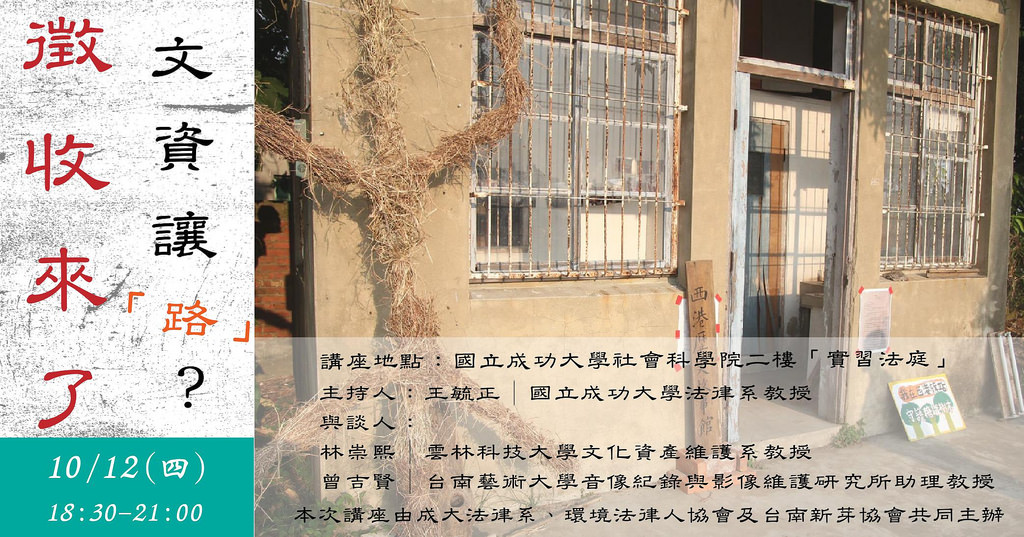 徵收來了
文資讓
「路」
?
10/12(四)
18:30-21:00
西港
館
講座地點:國立成功大學社會科學院二樓「實習法庭」
主持人:王毓正│國立成功大學法律系教授
與談人:
林崇熙│雲林科技大學文化資產維護系教授
曾吉賢│台南藝術大學音像紀錄與影像維護研究所助理教授
本次講座由成大法律系、環境法律人協會及台南新芽協會共同主辦